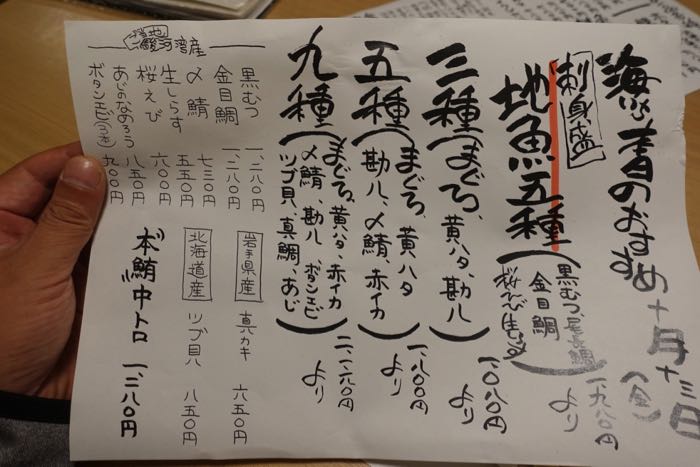 海の青のおすすめ 十月十三日(金)
刺身盛
地魚五種(黒むつ、尾長鯛
金目鯛
桜えび、生しらす) 一、九八〇円
より
三種(まぐろ、黄ハタ、勘八) 一、〇八〇円
より
五種(まぐろ、黄ハタ
勘八、〆鯖、赤イカ) 一、八〇〇円
より
九種(まぐろ、黄ハタ、赤イカ
〆鯖 勘八 ボタンエビ
ツブ貝、真鯛、あじ) 二、二八〇円
より
駿河湾産
黒むつ 一、二八〇円
金目鯛 一、二八〇円
〆鯖 七三〇円
生しらす 五五〇円
桜えび 六〇〇円
あじのなめろう 八五〇円
ボタンエビ 九〇〇円
岩手県産 真カキ 六五〇円
北海道産 ツブ貝 八五〇円
本鮪中トロ 一、二八〇円